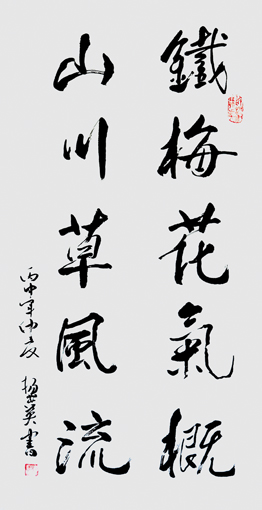 鐵梅花氣概
山川草風流
丙申年仲夏 英書